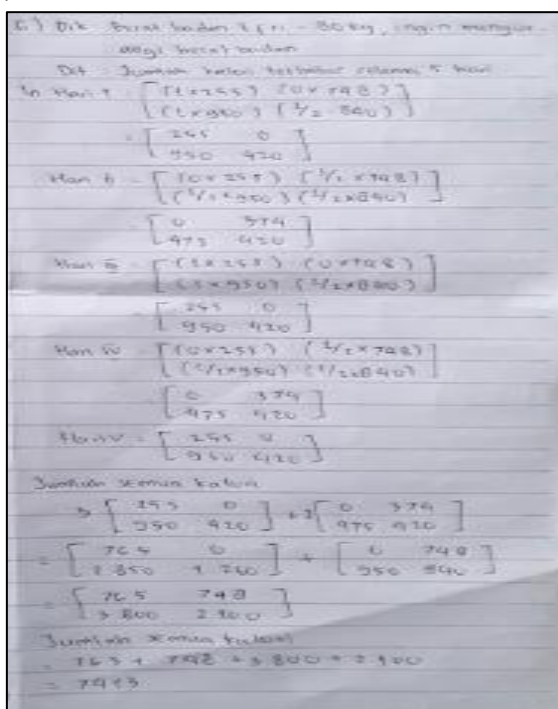 Dik berat badan - 80 kg, ingin mengu-
rangi berat badan
Dit : Jumlah kalori terbakar selama 5 hari
Hari I [ (1×255) (0×748) ]
[ (1×950) (1/2 840) ]
= [ 255 0 ]
[ 950 420 ]
Hari = [ (0×255) (1/2×748) ]
[ (1/2×950) (1/2×840) ]
[ 0 374 ]
[ 475 420 ]
Hari = [ (1×255) (0×748) ]
[ (1×950) (1/2×840) ]
[ 255 0 ]
[ 950 420 ]
Hari IV [ (0×255) (1/2×748) ]
[ (1/2×950) (1/2×840) ]
[ 0 374 ]
[ 475 420 ]
Hari V = [ 255 0 ]
[ 950 420 ]
Jumlah semua kalori
3 [ 255 0 ] + 2 [ 0 374 ]
[ 950 420 ] [ 475 420 ]
= [ 765 0 ] + [ 0 748 ]
[ 2 850 1 260 ] [ 950 840 ]
= [ 765 748 ]
[ 3 800 2 100 ]
Jumlah semua kalori
= 765 + 748 + 3 800 + 2 100
= 7413